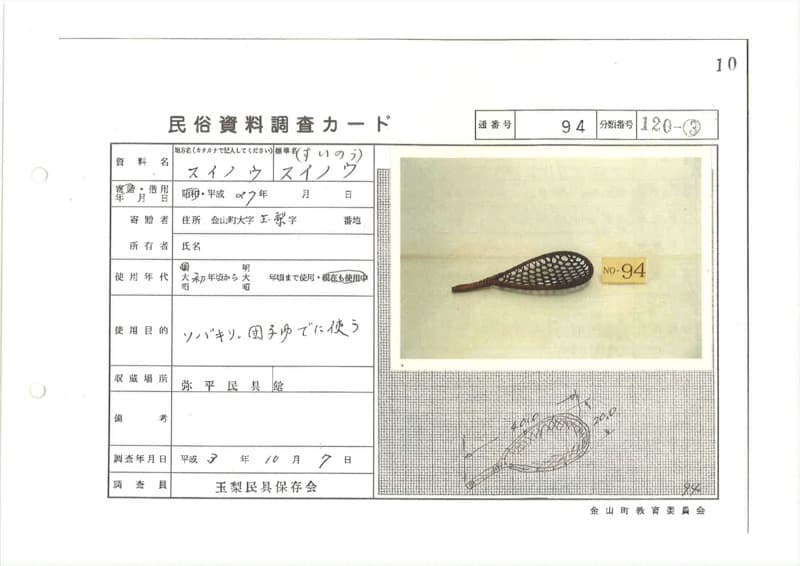 10
民俗資料調査カード
通番号 94 分類番号 120-③
資料名 地方名(カタカナで記入してください) スイノウ 標準名(すいのう) スイノウ
寄贈・借用年月日 昭和・平成 27年 月 日
寄贈者 住所 金山町大字玉梨字 番地
所有者 氏名
使用年代 明大昭 初年頃から 明大昭 年頃まで使用・現在も使用中
使用目的 ソバキリ。団子ゆでに使う
収蔵場所 弥平民具館
備考
調査年月日 平成 3年 10月 7日
調査員 玉梨民具保存会
NO-94
40.0
20.0
94
金山町教育委員会